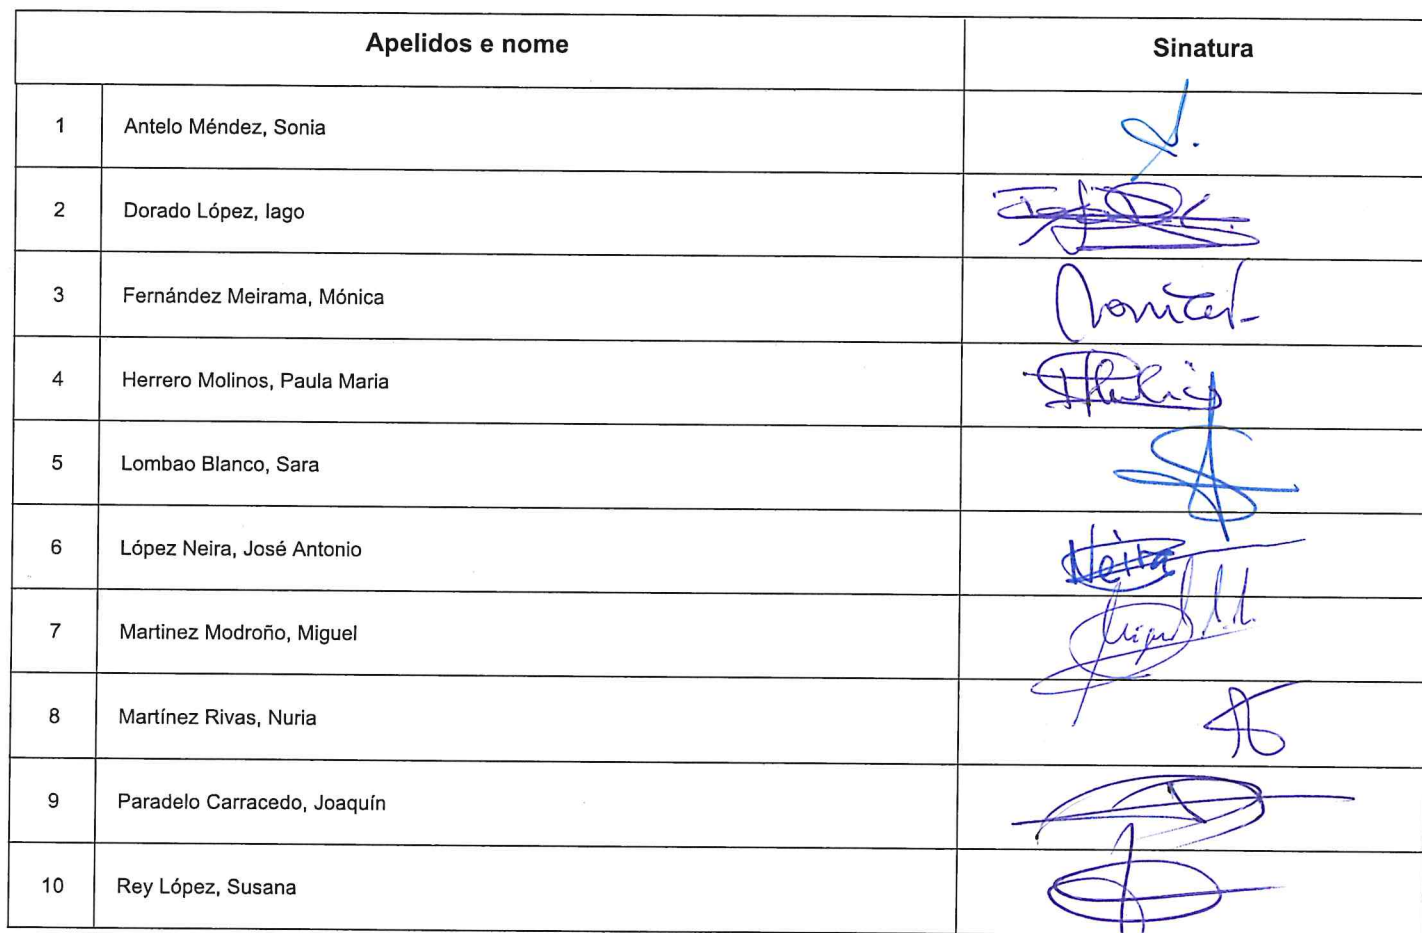 Apelidos e nome Sinatura
1 Antelo Méndez, Sonia
2 Dorado López, Iago
3 Fernández Meirama, Mónica
4 Herrero Molinos, Paula Maria
5 Lombao Blanco, Sara
6 López Neira, José Antonio Neira
7 Martinez Modroño, Miguel Miguel
8 Martínez Rivas, Nuria
9 Paradelo Carracedo, Joaquín
10 Rey López, Susana